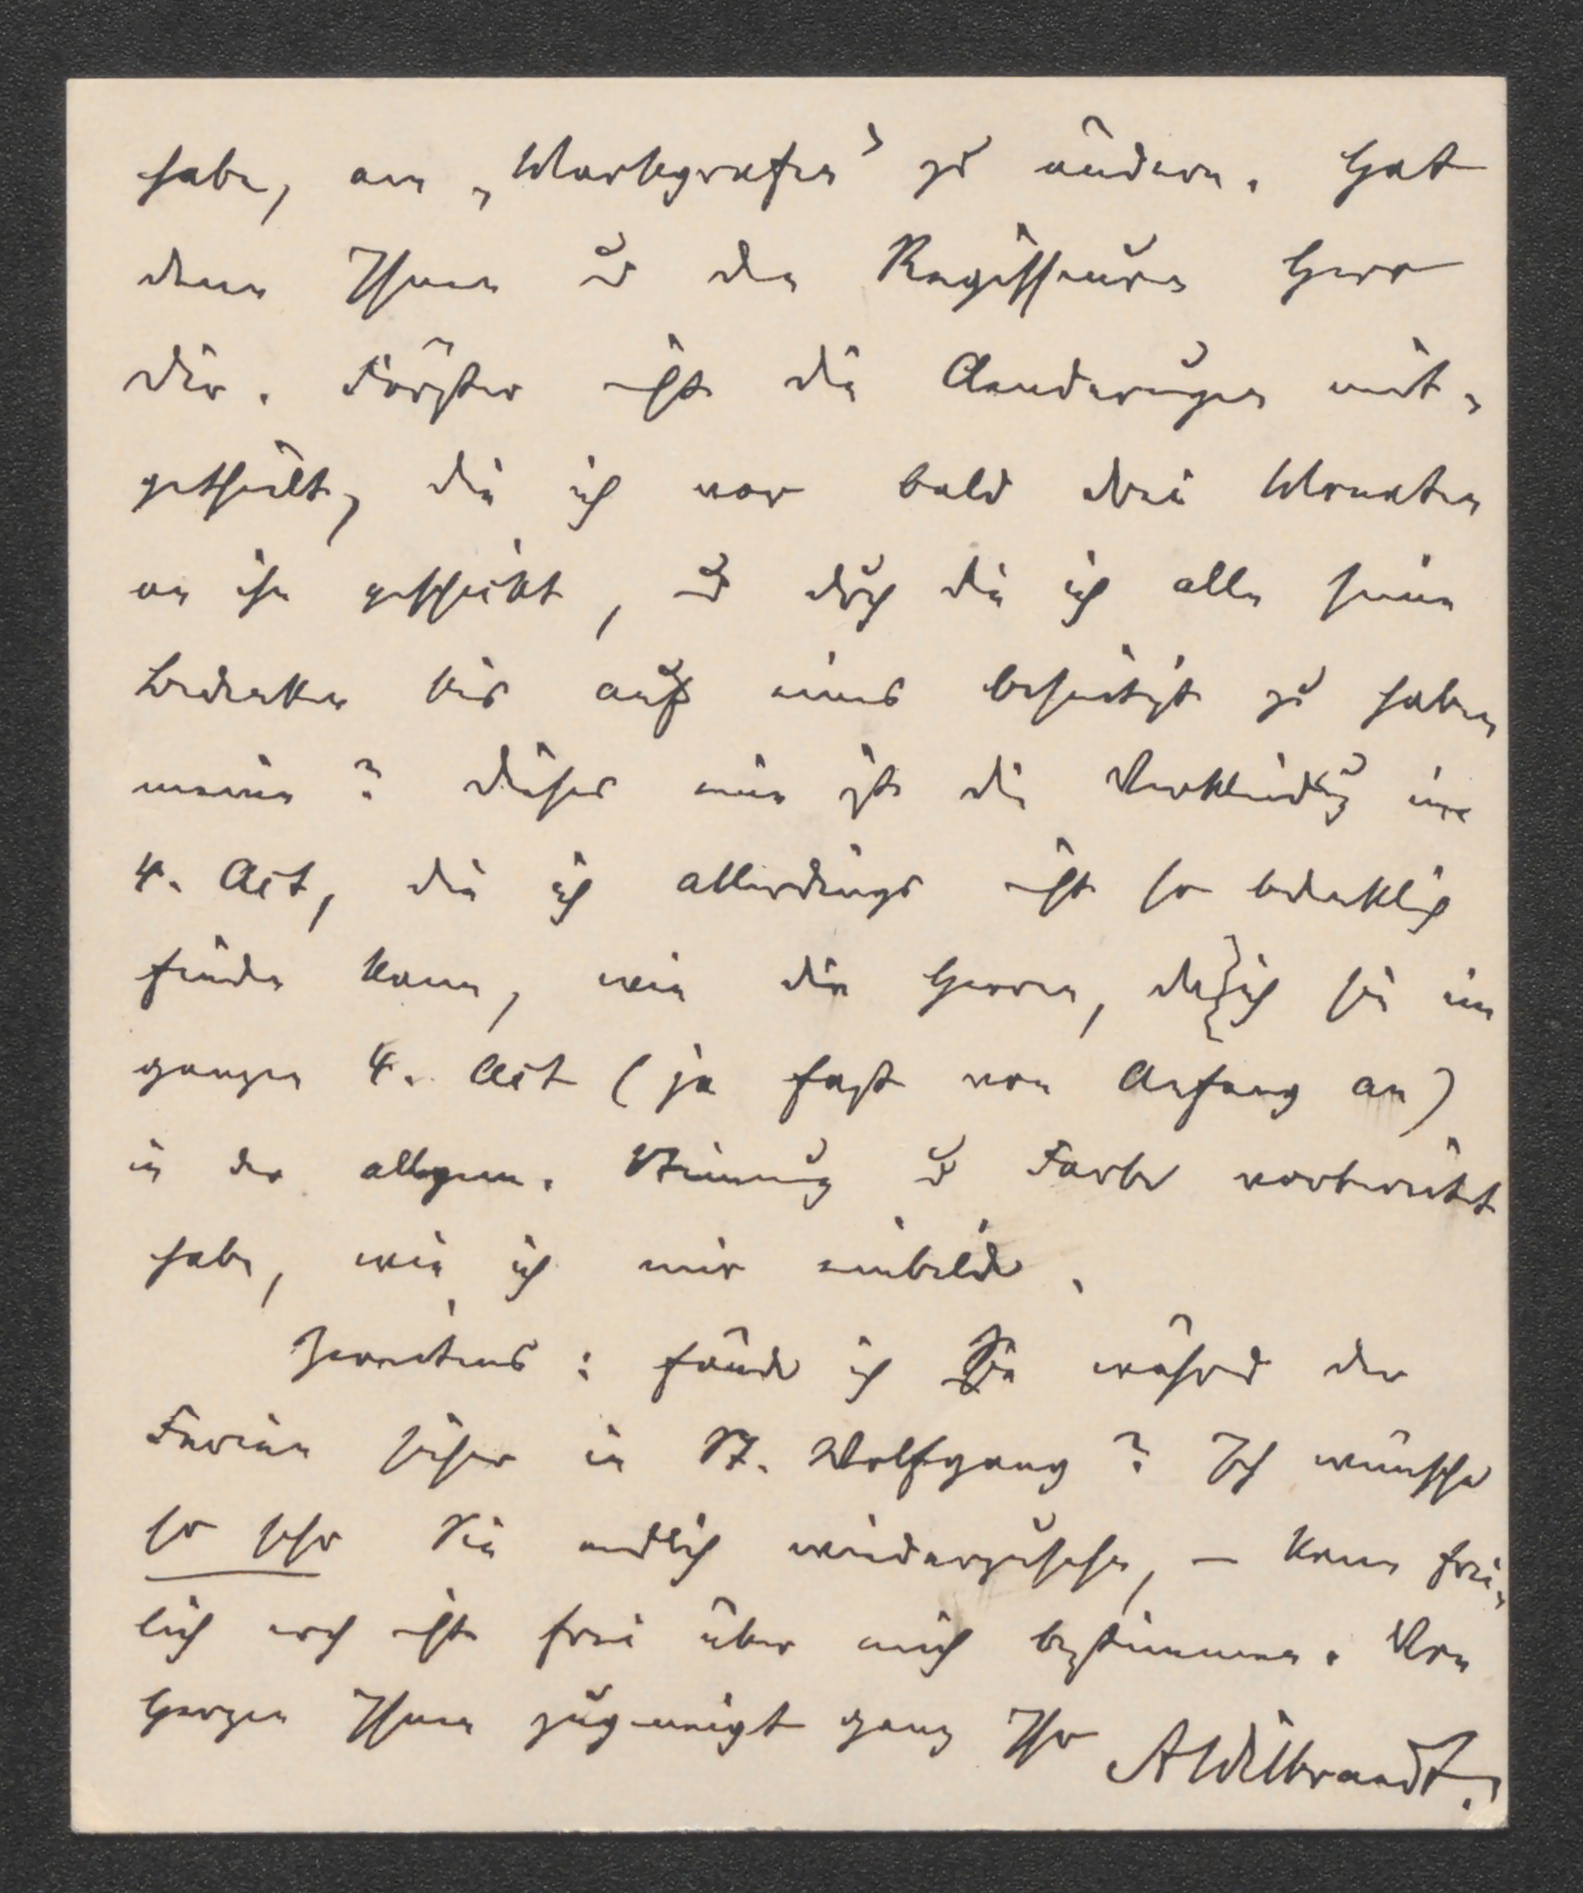 habe, am „Markgrafen" zu ändern. Hat
denn Ihnen u den Regisseuren Herr
Dir. Förster nicht die Aenderungen mit-
getheilt, die ich vor bald drei Monaten
an ihn geschickt, u durch die ich alle seine
Bedenken bis auf eines beseitigt zu haben
meine? Dieses eine ist die Verkleidung im
4. Act, die ich allerdings nicht so bedenklich
finden kann, wie die Herren, da ich sie im
ganzen 4. Act (ja fast von Anfang an)
in der allgem. Stimmung u Farbe vorbereitet
habe, wie ich mir einbilde.
Zweitens: fände ich Sie während der
Ferien sicher in St. Wolfgang? Ich wünsche
so sehr Sie endlich wiederzusehen, – kann frei-
lich noch nicht frei über mich bestimmen. Von
Herzen Ihnen zugeneigt ganz Ihr AWilbrandt.